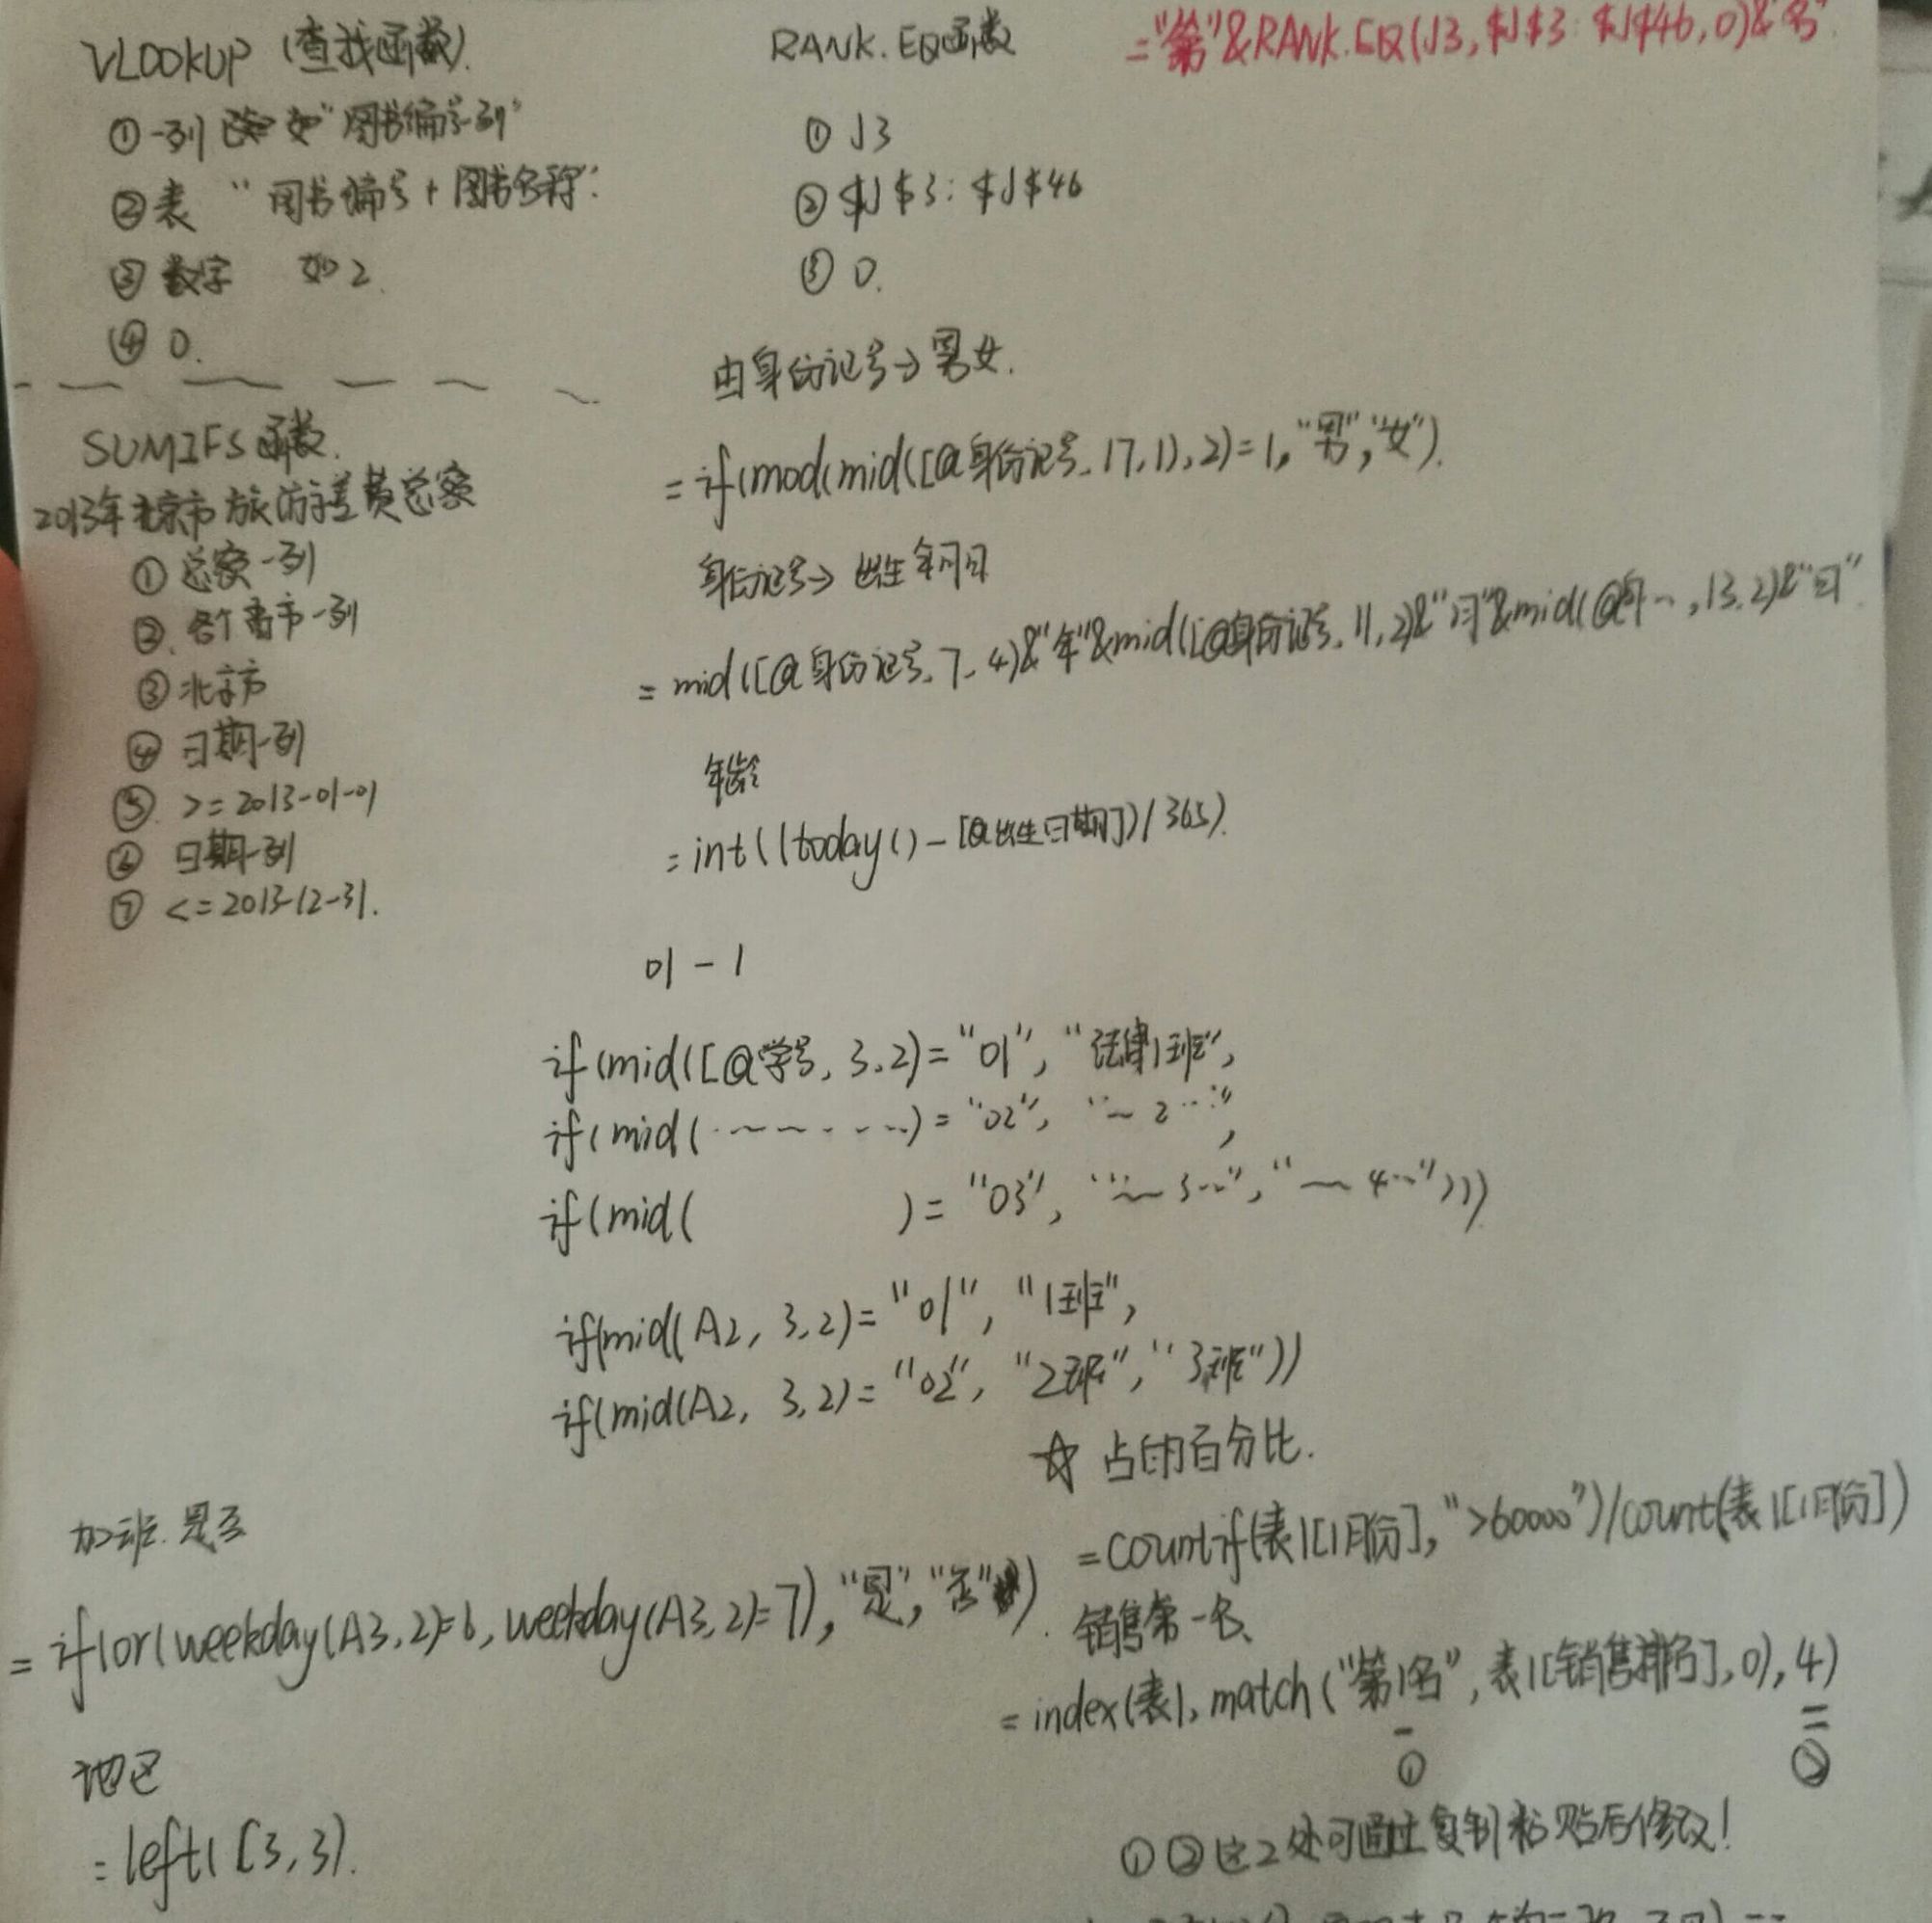 VLOOKUP (查找函数).
①一列 已知 如"图书编号列"
②表 "图书编号+图书名称".
③数字 如2.
④ 0.
SUMIFS函数.
2013年北京市旅游差费总额
① 总额一列
②. 各个省市一列
③北京市
④ 日期一列
⑤. >=2013-01-01
⑥ 日期一列
⑦ <=2013-12-31.
RANK.EQ函数
="第"&RANK.EQ(J3,$J$3:$J$46,0)&"名".
① J3
② $J$3:$J$46
③ 0.
由身份证号→男女.
=if(mod(mid([@身份证号,17,1),2)=1,"男","女").
身份证号→出生年月日
=mid([@身份证号,7,4)&"年"&mid([@身份证号,11,2)&"月"&mid(@身…,13,2)&"日".
年龄
=int((today()-[@出生日期])/365).
01-1
if(mid([@学号,3,2)="01","法律1班",
if(mid(………)="02","~2…",
if(mid( )="03","~3…","~4…")))
if(mid(A2,3,2)="01","1班",
if(mid(A2,3,2)="02","2班","3班"))
☆ 占的百分比.
=countif(表1[1月份],">60000")/count(表1[1月份])
加班.是否
=if(or(weekday(A3,2)=6,weekday(A3,2)=7),"是","否").
销售第一名、
=index(表1,match("第1名",表1[销售排名],0),4)
① ②
地区
=left(C3,3).
①②这2处可通过复制粘贴后修改!